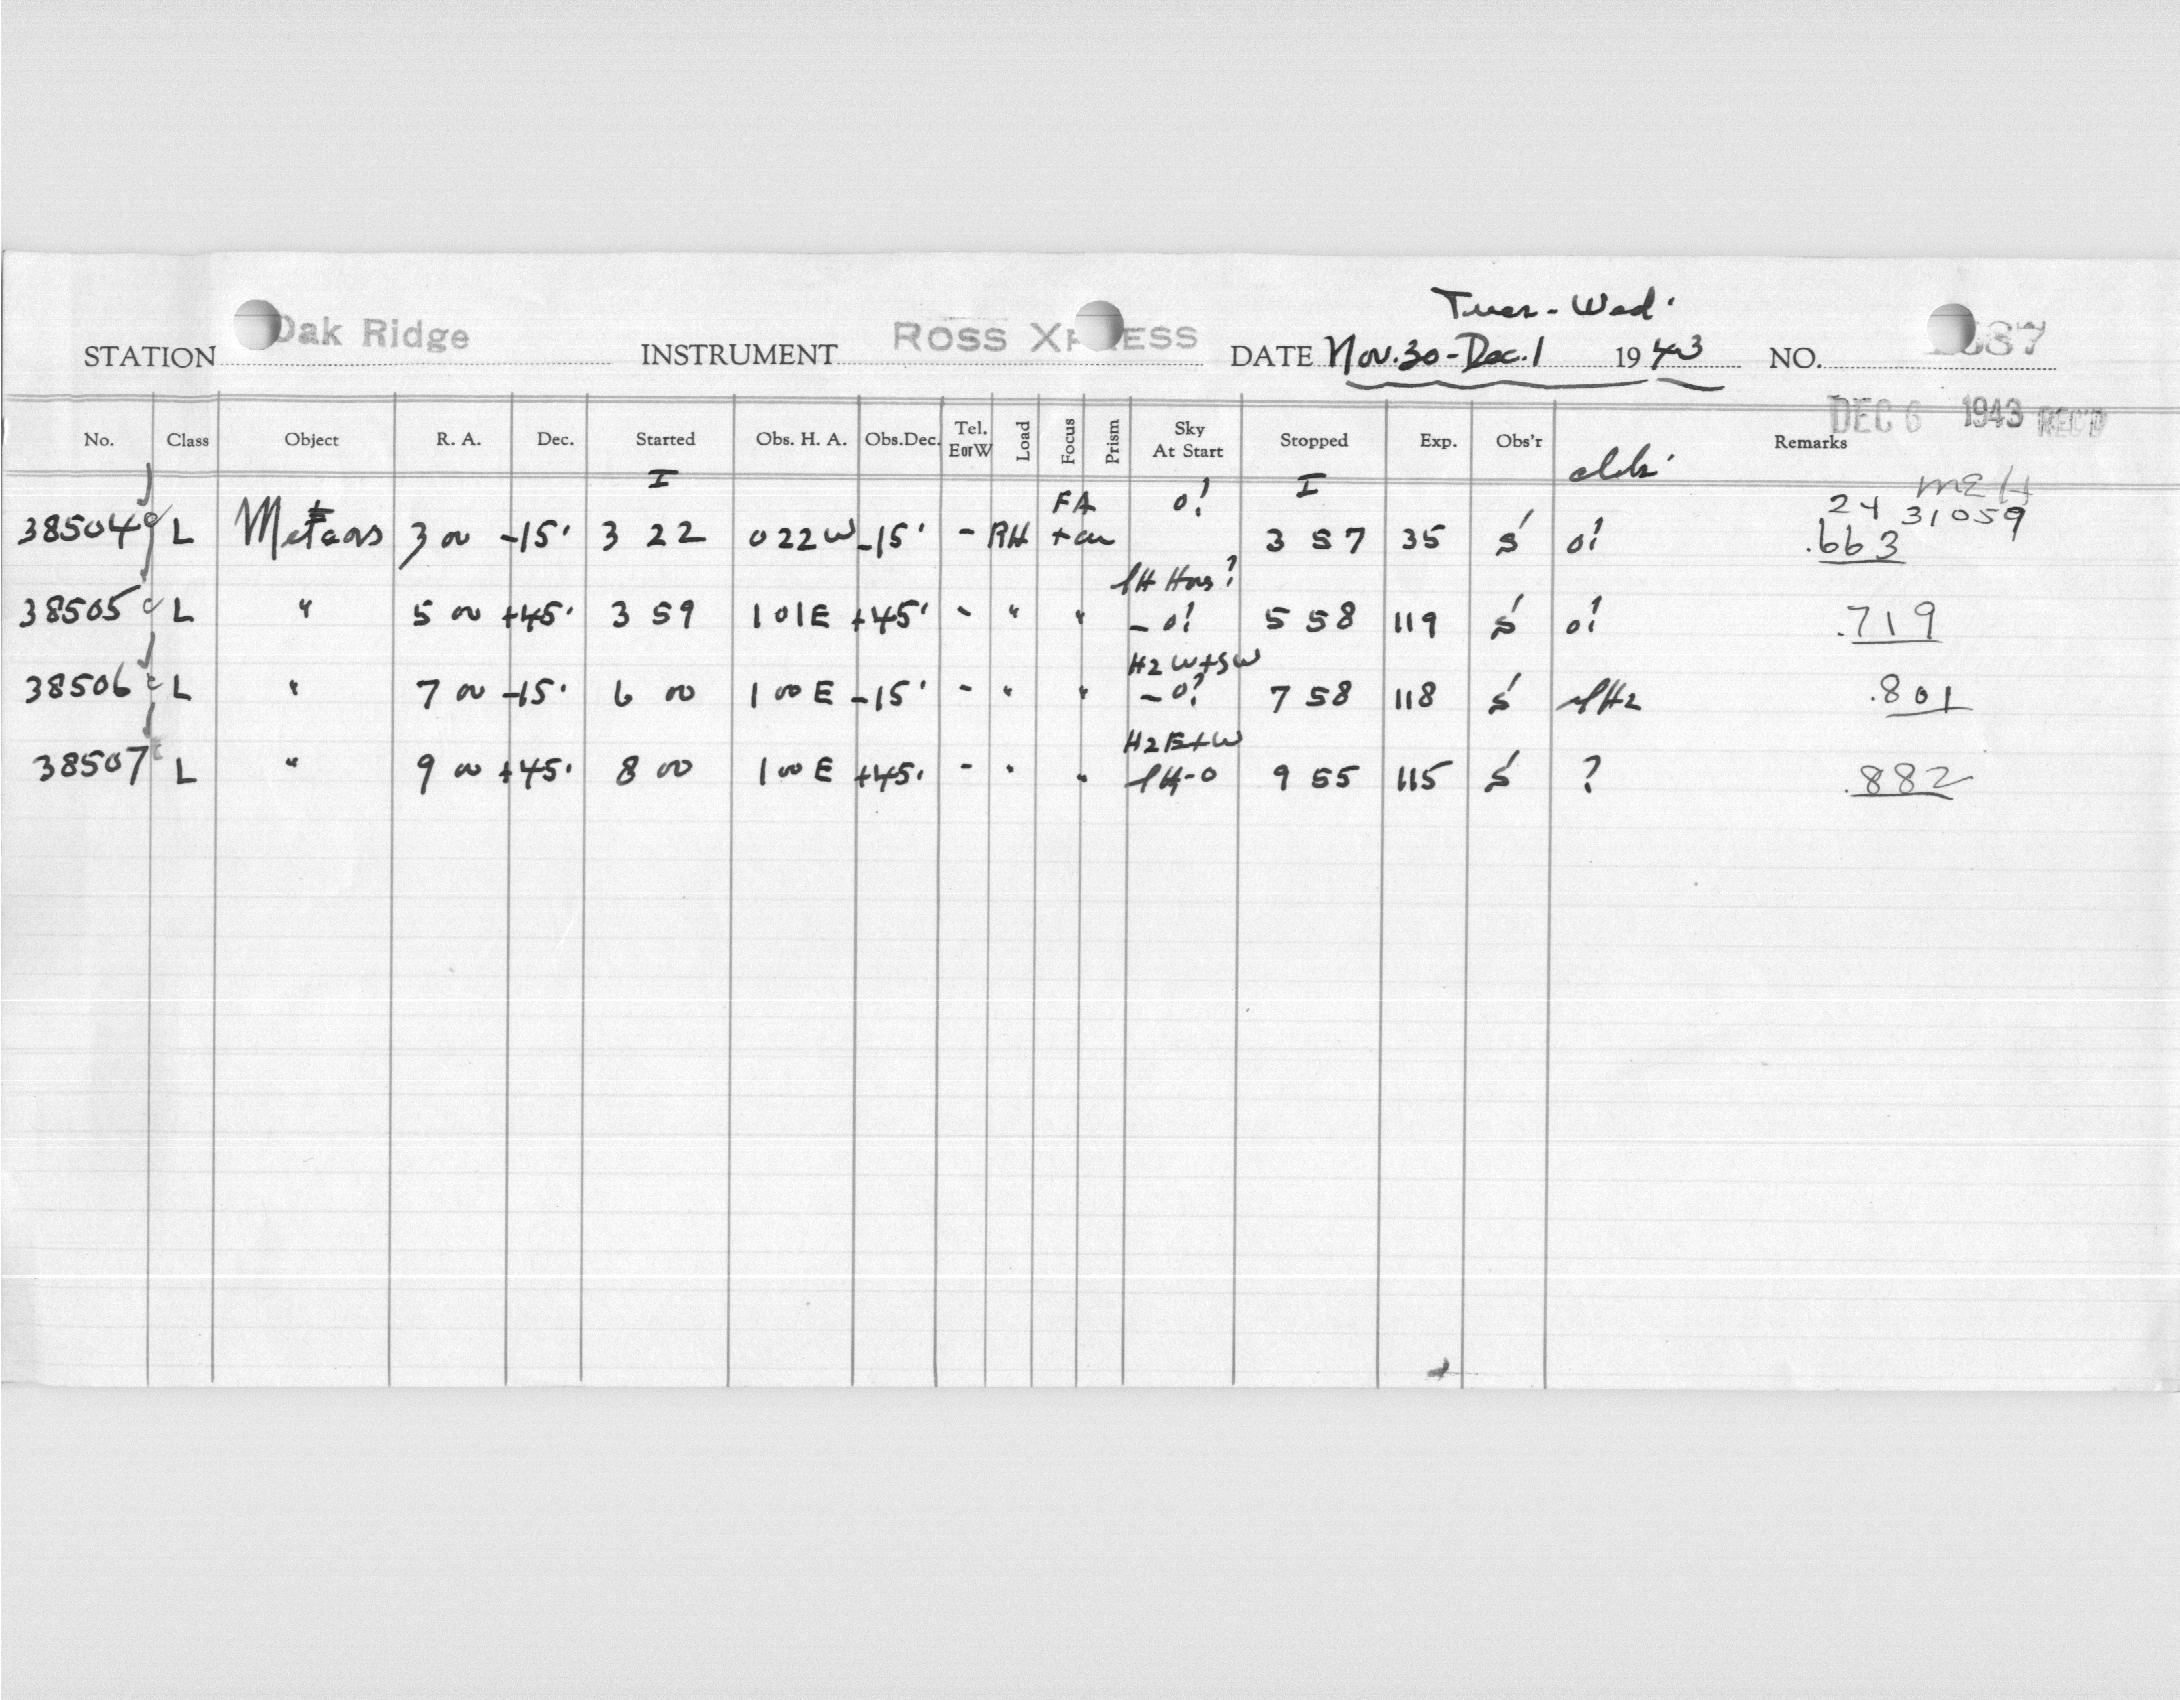 Tues-Wed.
STATION Oak Ridge INSTRUMENT ROSS XPRESS DATE Nov. 30-Dec. 1 1943 NO. 87
DEC 6 1943 REC'D
No. Class Object R. A. Dec. Started Obs. H. A. Obs.Dec. Tel. EorW Load Focus Prism Sky At Start Stopped Exp. Obs'r Remarks
I I
MEH
FA o! 24 31059
38504 L Meteors 3 00 -15· 3 22 0 22 W -15· - RH 3 57 35 S o! .663
38505 L " 5 00 +45· 3 59 1 01 E +45· - " " - o! 5 58 119 S o! .719
H2 W+SW
38506 L " 7 00 -15· 6 00 1 00 E -15· - " " - o? 7 58 118 S .801
H2 E+W
38507 L " 9 00 +45· 8 00 1 00 E +45· - " " 9 55 115 S ? .882